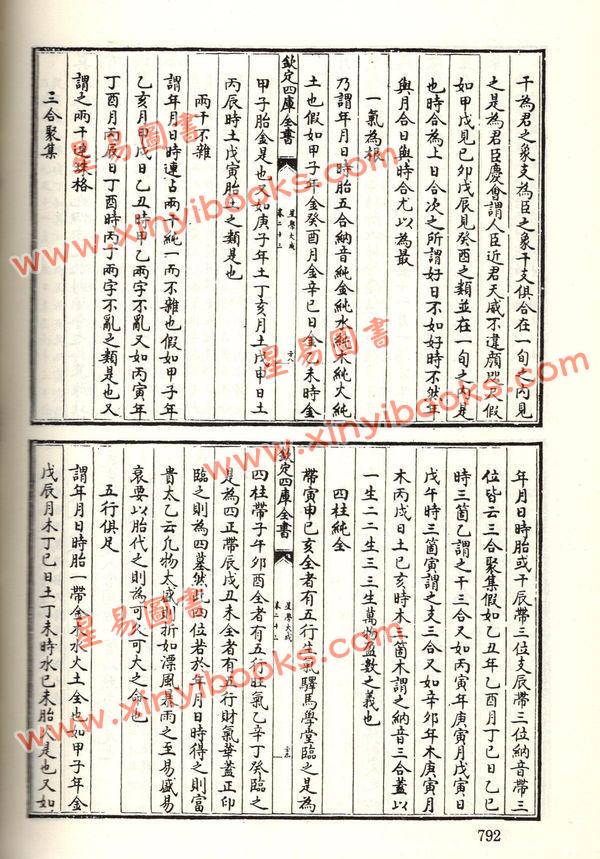 干為君之象支為臣之象干支俱合在一旬之內見
之是為君臣慶會謂人臣近君天威不違顏咫尺假
如甲戌見己卯戊辰見癸酉之類並在一旬之內是
也時合為上日合次之所謂好日不如好時不然年
與月合日與時合尤以為最
一氣為根
乃謂年月日時胎五合納音純金純水純木純火純
土也假如甲子年金癸酉月金辛巳日金乙未時金
欽定四庫全書
星學大成
卷二十三
甲子胎金是也又如庚子年土丁亥月土戊申日土
丙辰時土戊寅胎土之類是也
兩干不雜
謂年月日時連占兩干純一而不雜也假如甲子年
乙亥月甲戌日乙丑時甲乙兩字不亂又如丙寅年
丁酉月丙辰日丁酉時丙丁兩字不亂之類是也又
謂之兩干連珠格
三合聚集
年月日時胎或干辰帶三位支辰帶三位納音帶三
位皆云三合聚集假如乙丑年乙酉月丁巳日乙巳
時三箇乙謂之干三合又如丙寅年庚寅月戊寅日
戊午時三箇寅謂之支三合又如辛卯年木庚寅月
木丙戌日土己亥時木三箇木謂之納音三合蓋以
一生二二生三三生萬物盈數之義也
四柱純全
帶寅申巳亥全者有五行生氣驛馬學堂臨之是為
欽定四庫全書
星學大成
卷二十三
四柱帶子午卯酉全者有五行旺氣乙辛丁癸臨之
是為四正帶辰戌丑未全者有五行財氣華蓋正印
臨之則為四墓然此四位若於年月日時得之則富
貴太乙云凡物太盛則折如漂風暴雨之至易盛易
衰要以胎代之則為可久可大之命也
五行俱足
謂年月日時胎一帶金木水火土全也如甲子年金
戊辰月木丁巳日土丁未時水己未胎火是也又如
792
星易圖書
www.xinyibooks.com
星易圖書
www.xinyibooks.com
星易圖書
www.xinyibooks.com
星易圖書
www.xinyibooks.com